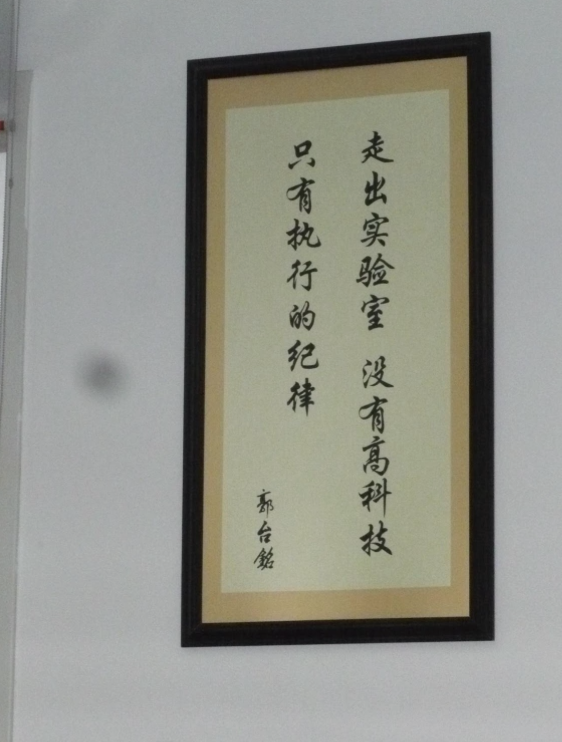 走出实验室 没有高科技
只有执行的纪律
郭台銘